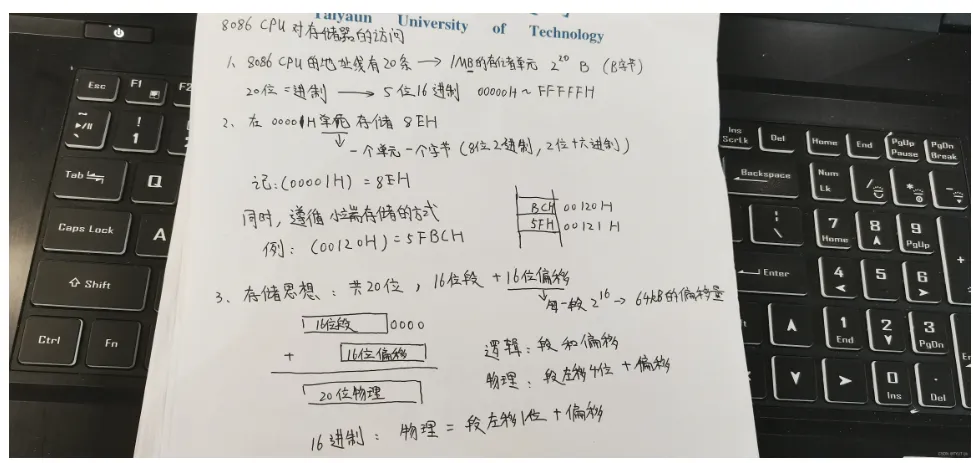 Taiyuan University of Technology
8086 CPU对存储器的访问
1、8086 CPU的地址线有20条 → 1MB的存储单元 2²⁰ B (B字节)
20位二进制 → 5位16进制 00000H ~ FFFFFH
2、在 00001H 单元存储 8EH
→ 一个单元一个字节 (8位2进制, 2位十六进制)
记: (00001H) = 8EH
同时, 遵循小端存储的方式
例: (00120H) = 5FBCH
BCH 00120H
5FH 00121H
3、存储思想: 共20位, 16位段 + 16位偏移
→ 每一段 2¹⁶ → 64kB的偏移量
16位段 0000
+ 16位偏移
20位物理
逻辑: 段和偏移
物理: 段左移4位 + 偏移
16进制: 物理 = 段左移1位 + 偏移
Esc
F1
F2
!
1
Tab
Q
Caps Lock
A
Shift
Ctrl
Fn
Ins
ScrLk
Del
Home
End
PgUp
Pause
PgDn
Break
Backspace
Num
Lk
/
*
-
Enter
7
Home
8
9
PgUp
4
5
6
1
End
2
3
PgDn
0
Ins
.
Del